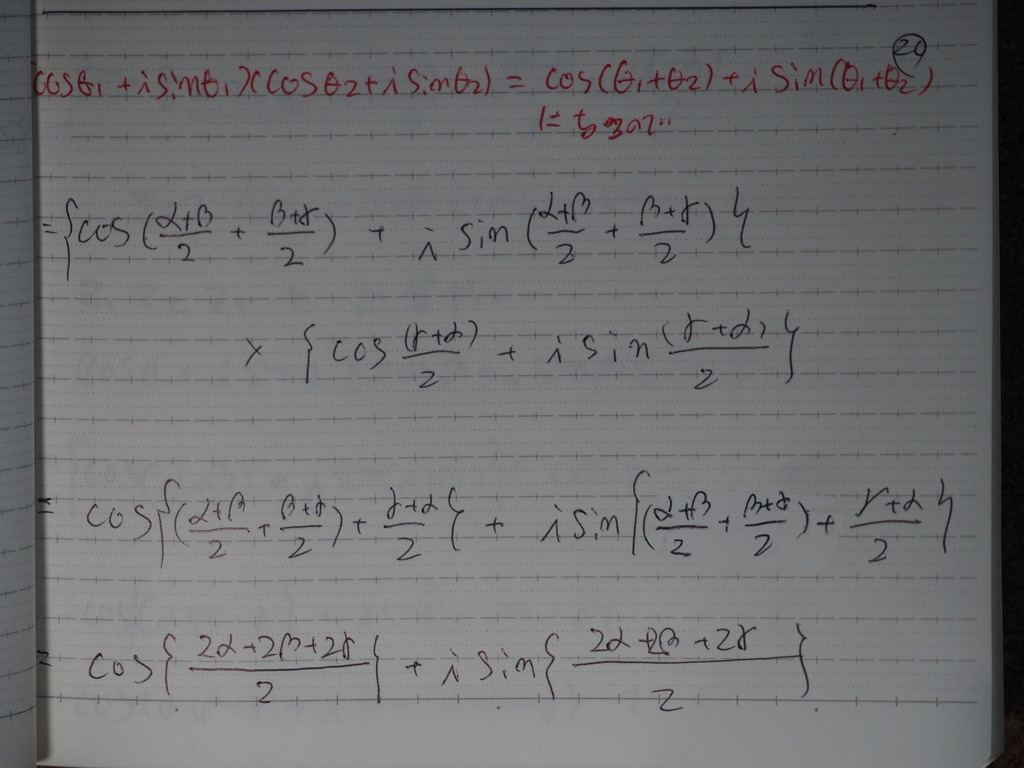 20
(cosθ1+isinθ1)(cosθ2+isinθ2) = cos(θ1+θ2)+i sin(θ1+θ2)
になるので..
={cos(α+β/2 + β+γ/2) + i sin(α+β/2 + β+γ/2)}
× {cos (γ+α)/2 + i sin (γ+α)/2}
= cos{(α+β/2 + β+γ/2) + γ+α/2} + i sin{(α+β/2 + β+γ/2) + γ+α/2}
= cos{2α+2β+2γ/2} + i sin{2α+2β+2γ/2}